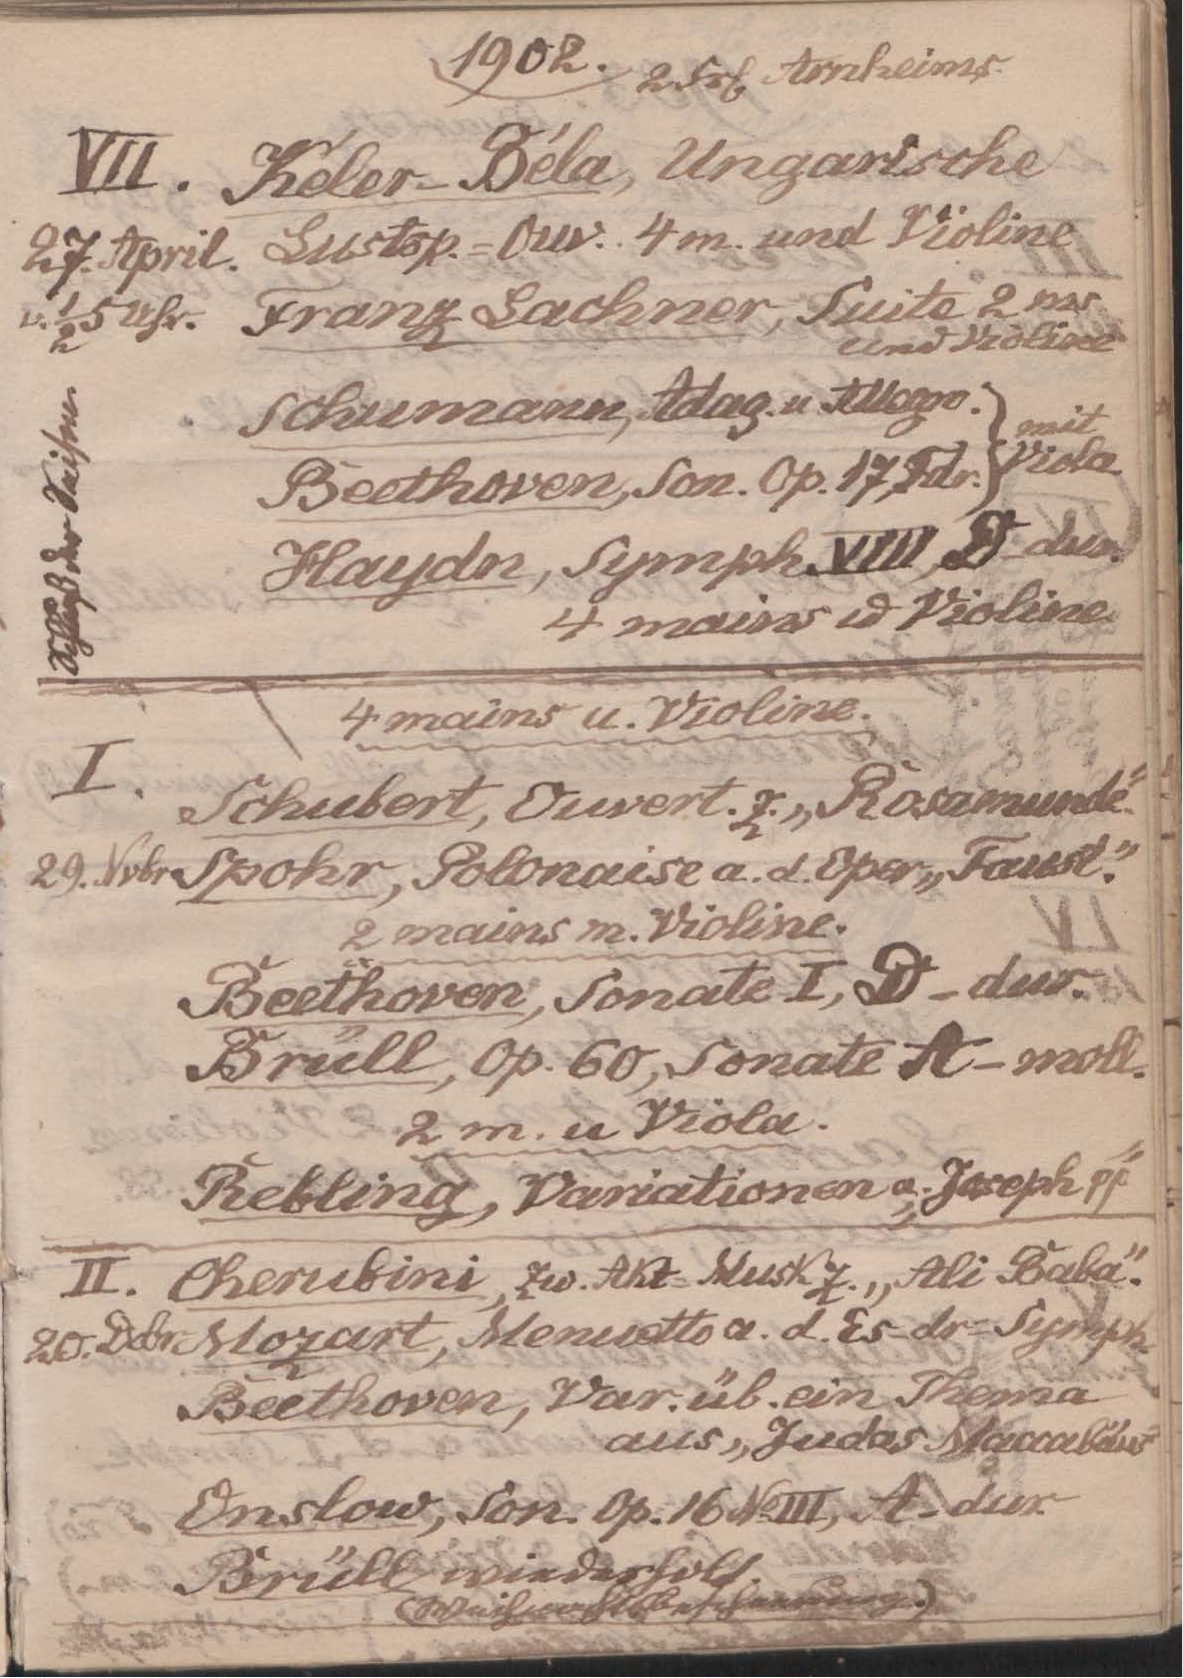 1902.
2 Frl. Arnheims.
VII. Kéler-Béla, Ungarische
27. April. Lustsp.-Ouv. 4 m. und Violine
v. ½5 Uhr. Franz Lachner, Suite 2 ms
und Violine
Schumann, Adag. u Allegro. } mit
Beethoven, Son. Op. 17, Fdr. } Viola
Haydn, Symph. VIII, D-dur.
4 mains ud Violine.
Schluß der Saison
4 mains u. Violine.
I.
Schubert, Ouvert. z. „Rosamunde“.
29. Nvbr. Spohr, Polonaise a. d. Oper „Faust“.
2 mains m. Violine.
Beethoven, Sonate I, D-dur.
Brüll, Op. 60, Sonate A-moll.
2 m. u Viola.
Rebling, Variationen a. „Joseph pp“
II. Cherubini, Zw. Akt-Musk z. „Ali Baba“.
20. Dcbr. Mozart, Menuetto a. d. Es-dr-Symph.
Beethoven, Var. üb. ein Thema
aus „Judas Maccabäus“
Onslow, Son. Op. 16 No III, A-dur.
Brüll wiederholt.
(Weihnachtsbescheerung.)